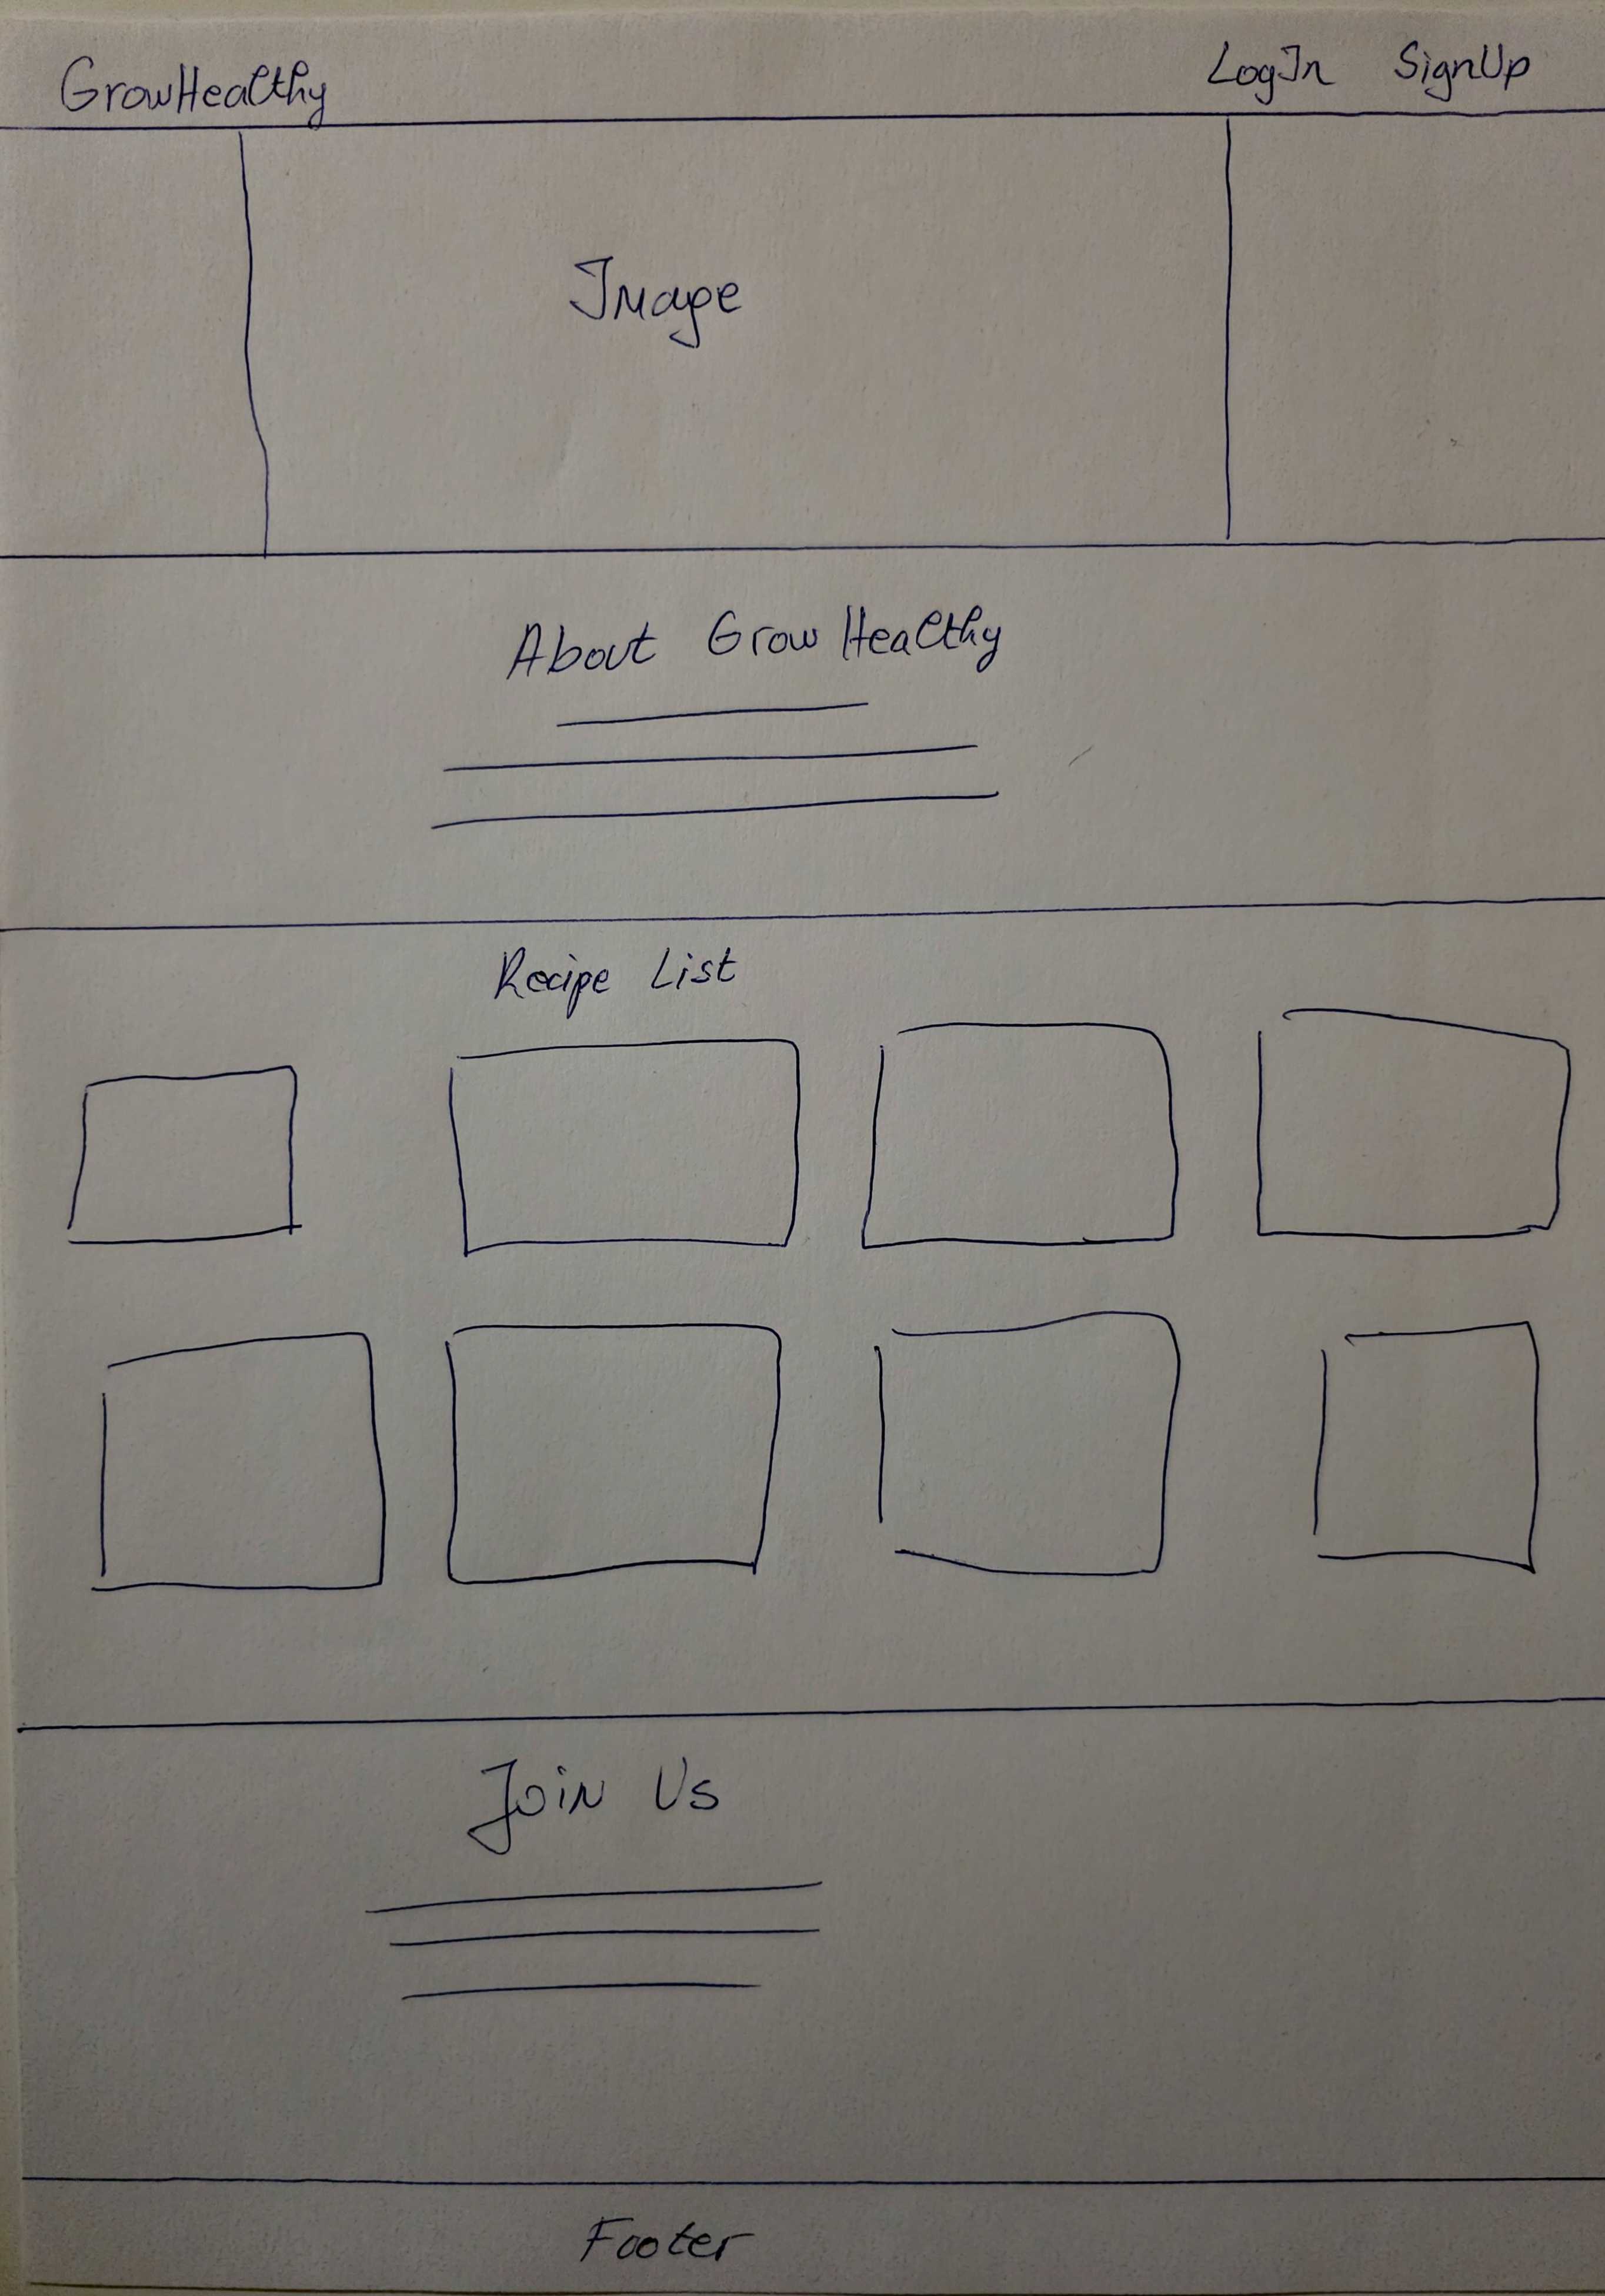 GrowHealthy LogIn SignUp
Image
About Grow Healthy
Recipe List
Join Us
Footer